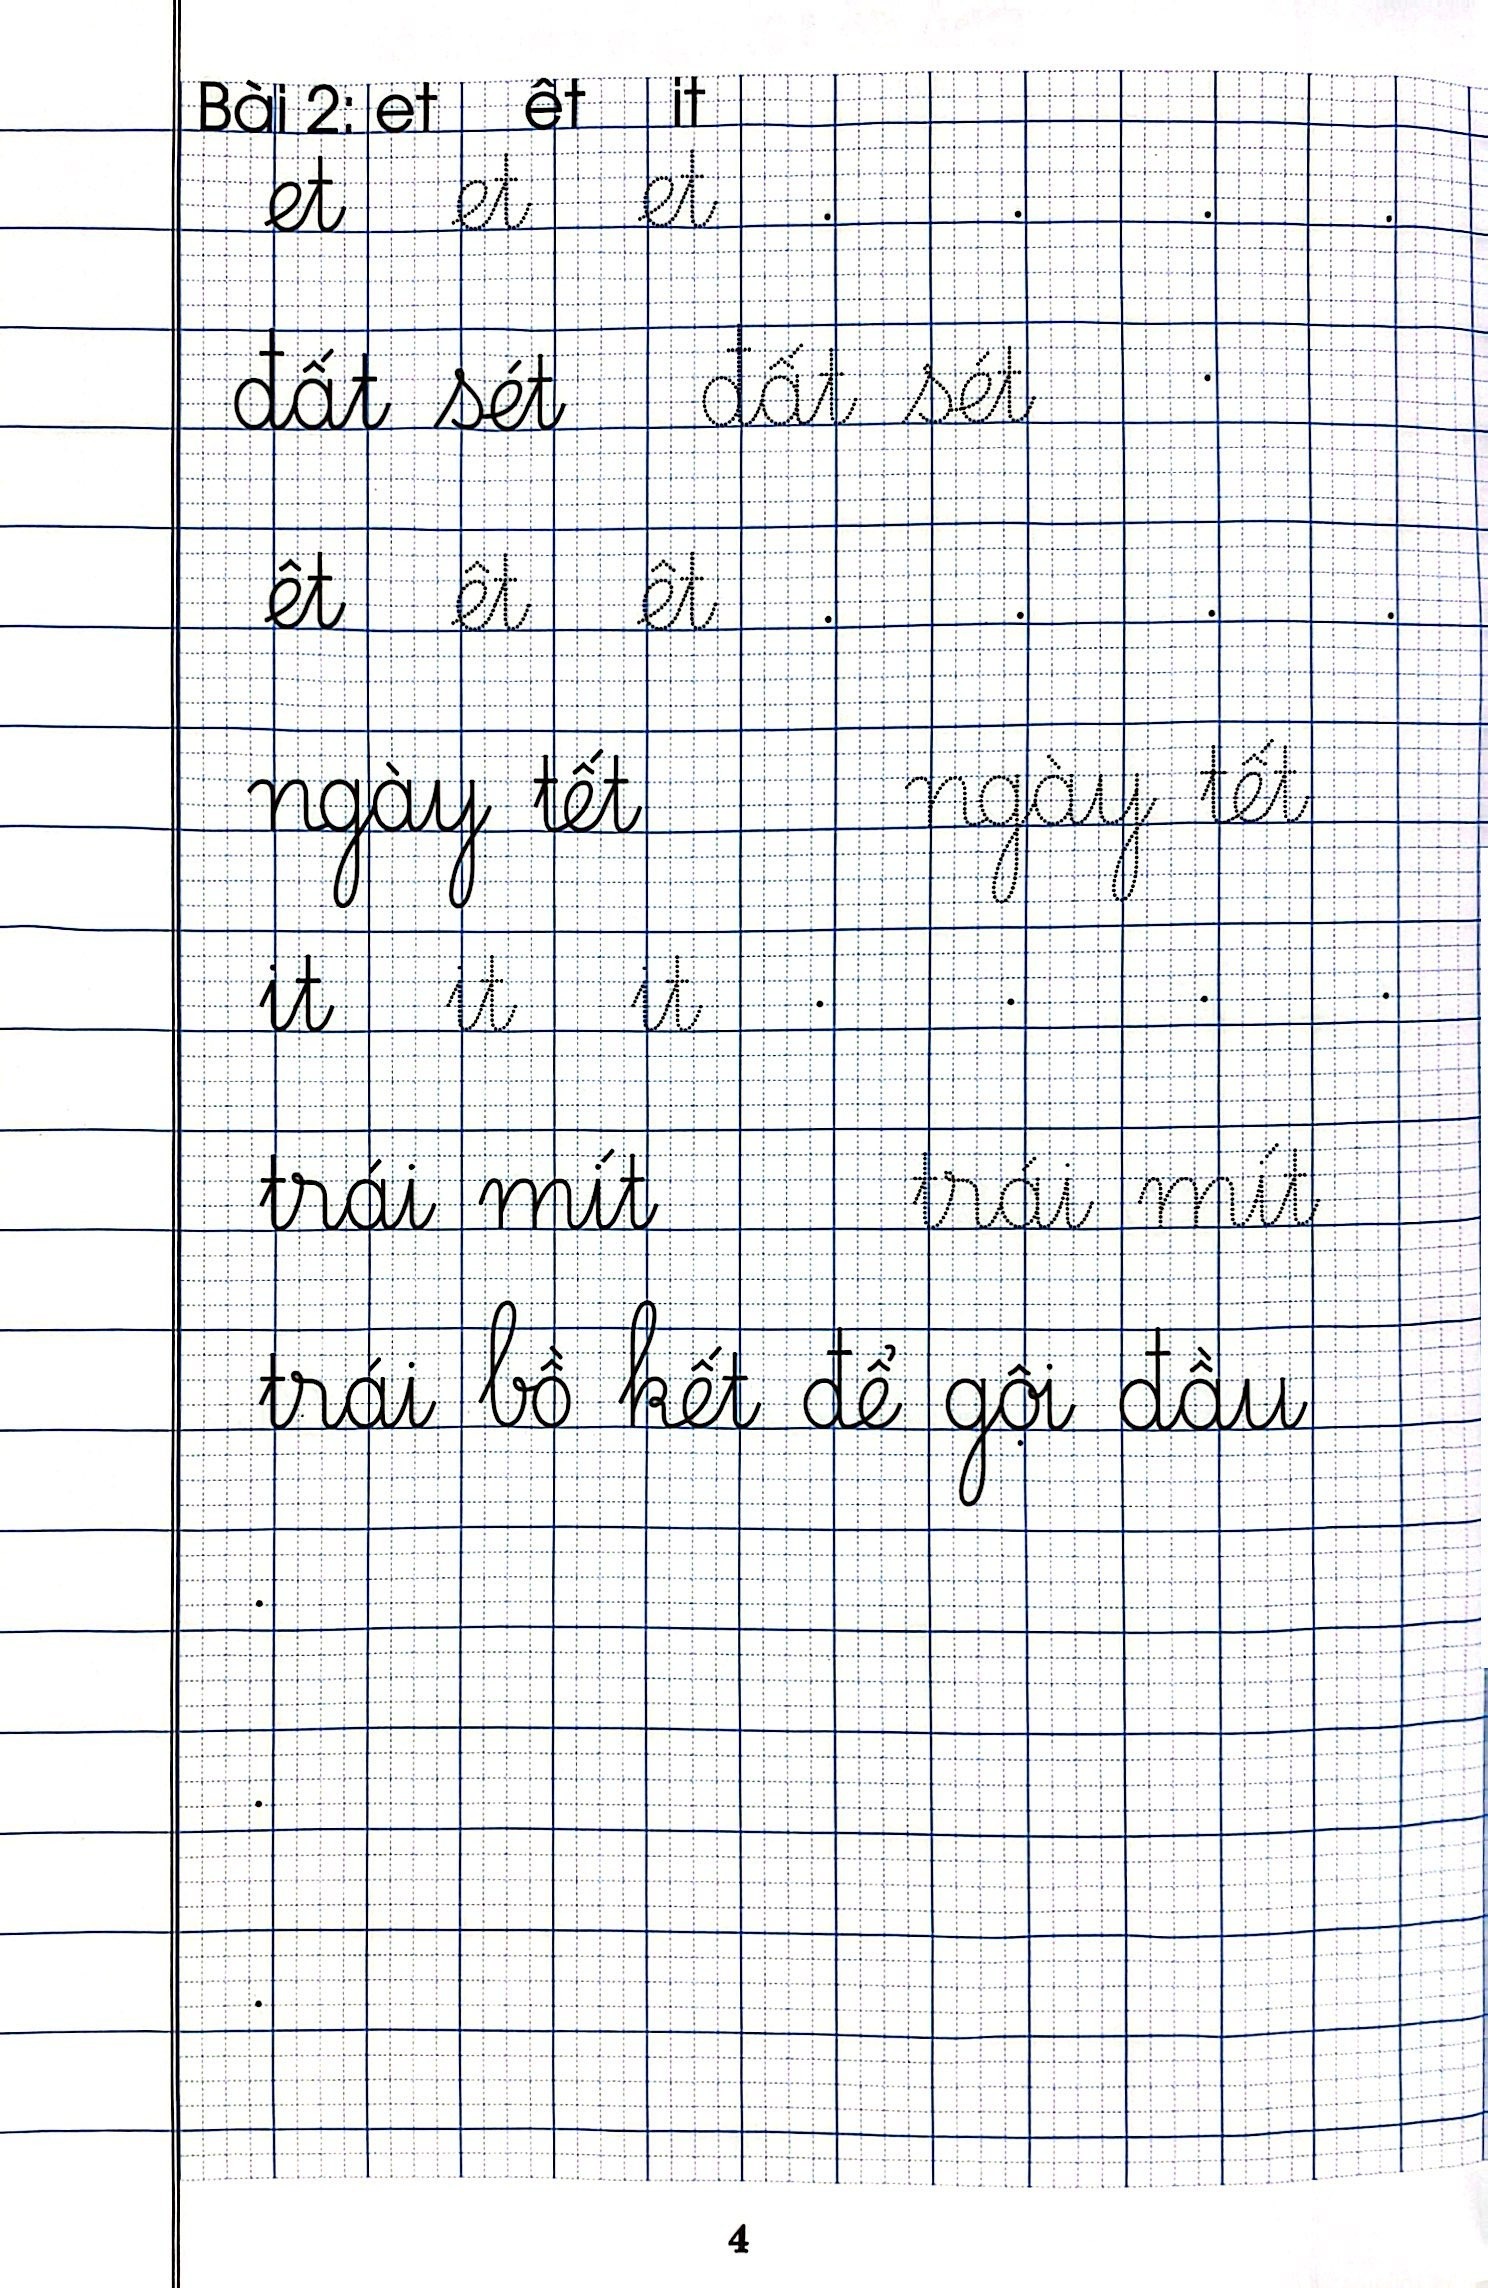 Bài 2: et êt it
et et et
đất sét đất sét
êt êt êt
ngày tết ngày tết
it it it
trái mít trái mít
trái bồ kết để gội đầu
4